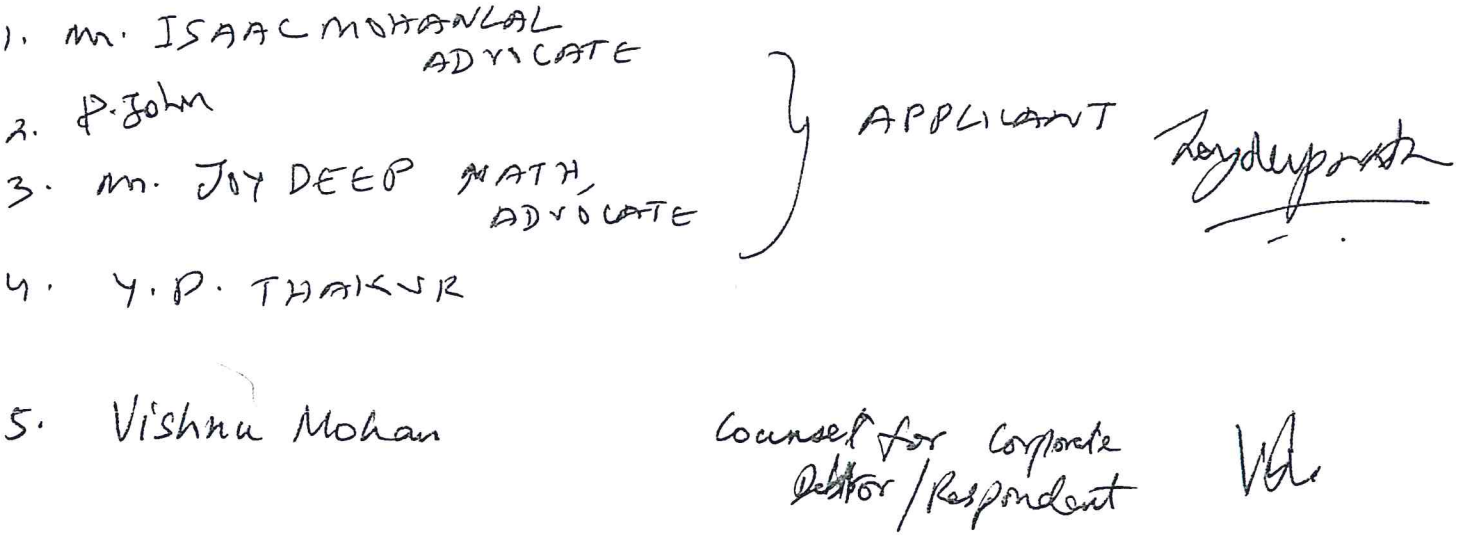 1. Mr. ISAAC MOHANLAL
ADVOCATE
2. P. John
3. Mr. JOY DEEP NATH,
ADVOCATE
APPLICANT
4. Y. P. THAKUR
5. Vishnu Mohan
Counsel for Corporate
Debtor / Respondent